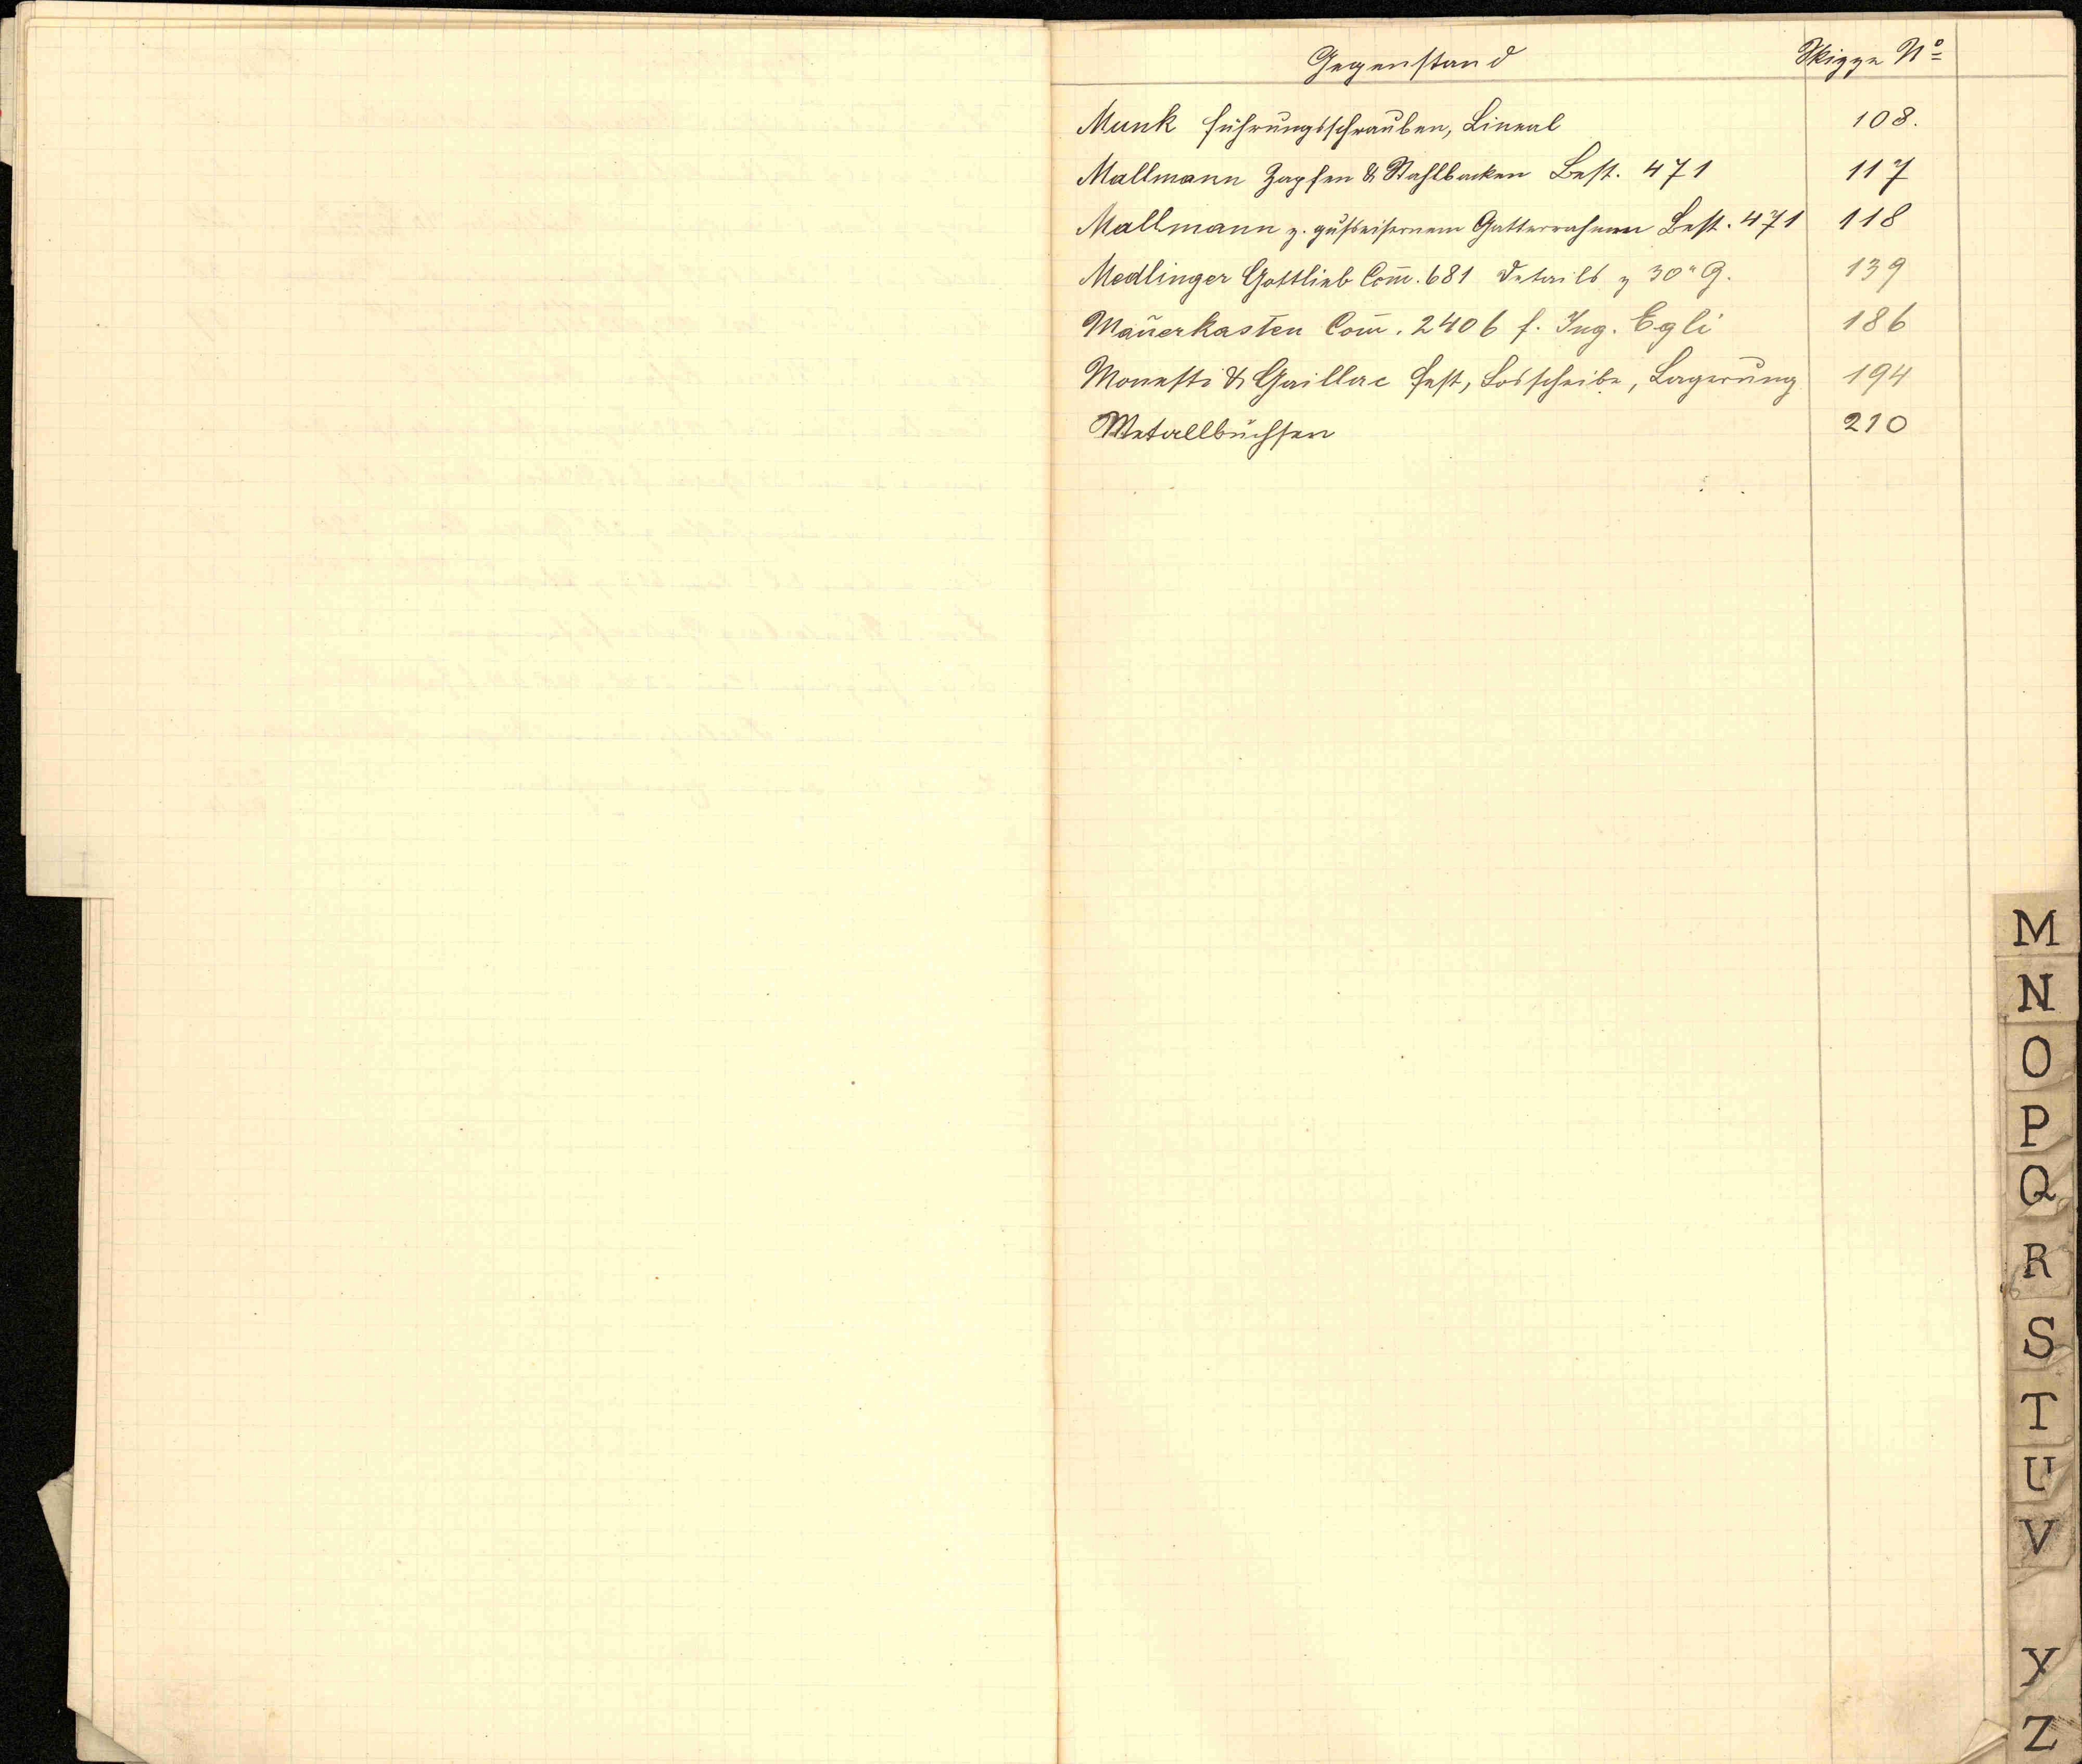 Gegenstand Skizze Nº
Munk Führungsschrauben, Lineal 108.
Mallmann Zapfen & Stahlbacken Best. 471 117
Mallmann z. gußeisernem Gatterrahmen Best. 471 118
Medlinger Gottlieb Com̅. 681 Details z 30" G. 139
Mauerkasten Com̅. 2406 f. Ing. Egli 186
& Gaillac fest, Losscheibe, Lagerung 194
Metallbüchsen 210
M
N
O
P
Q
R
S
T
U
V
Y
Z